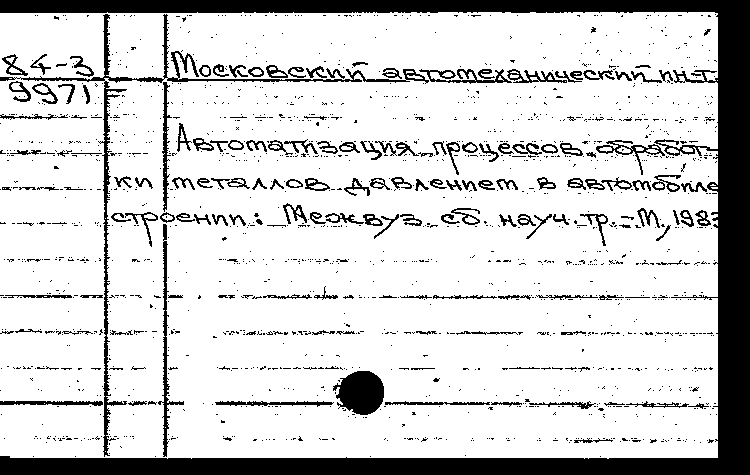 84-3 Московский автомеханический ин-т.
9971 =
Автоматизация процессов обработ-
ки металлов давлением в автомобиле
строении: Межвуз. сб. науч. тр. - М., 1983